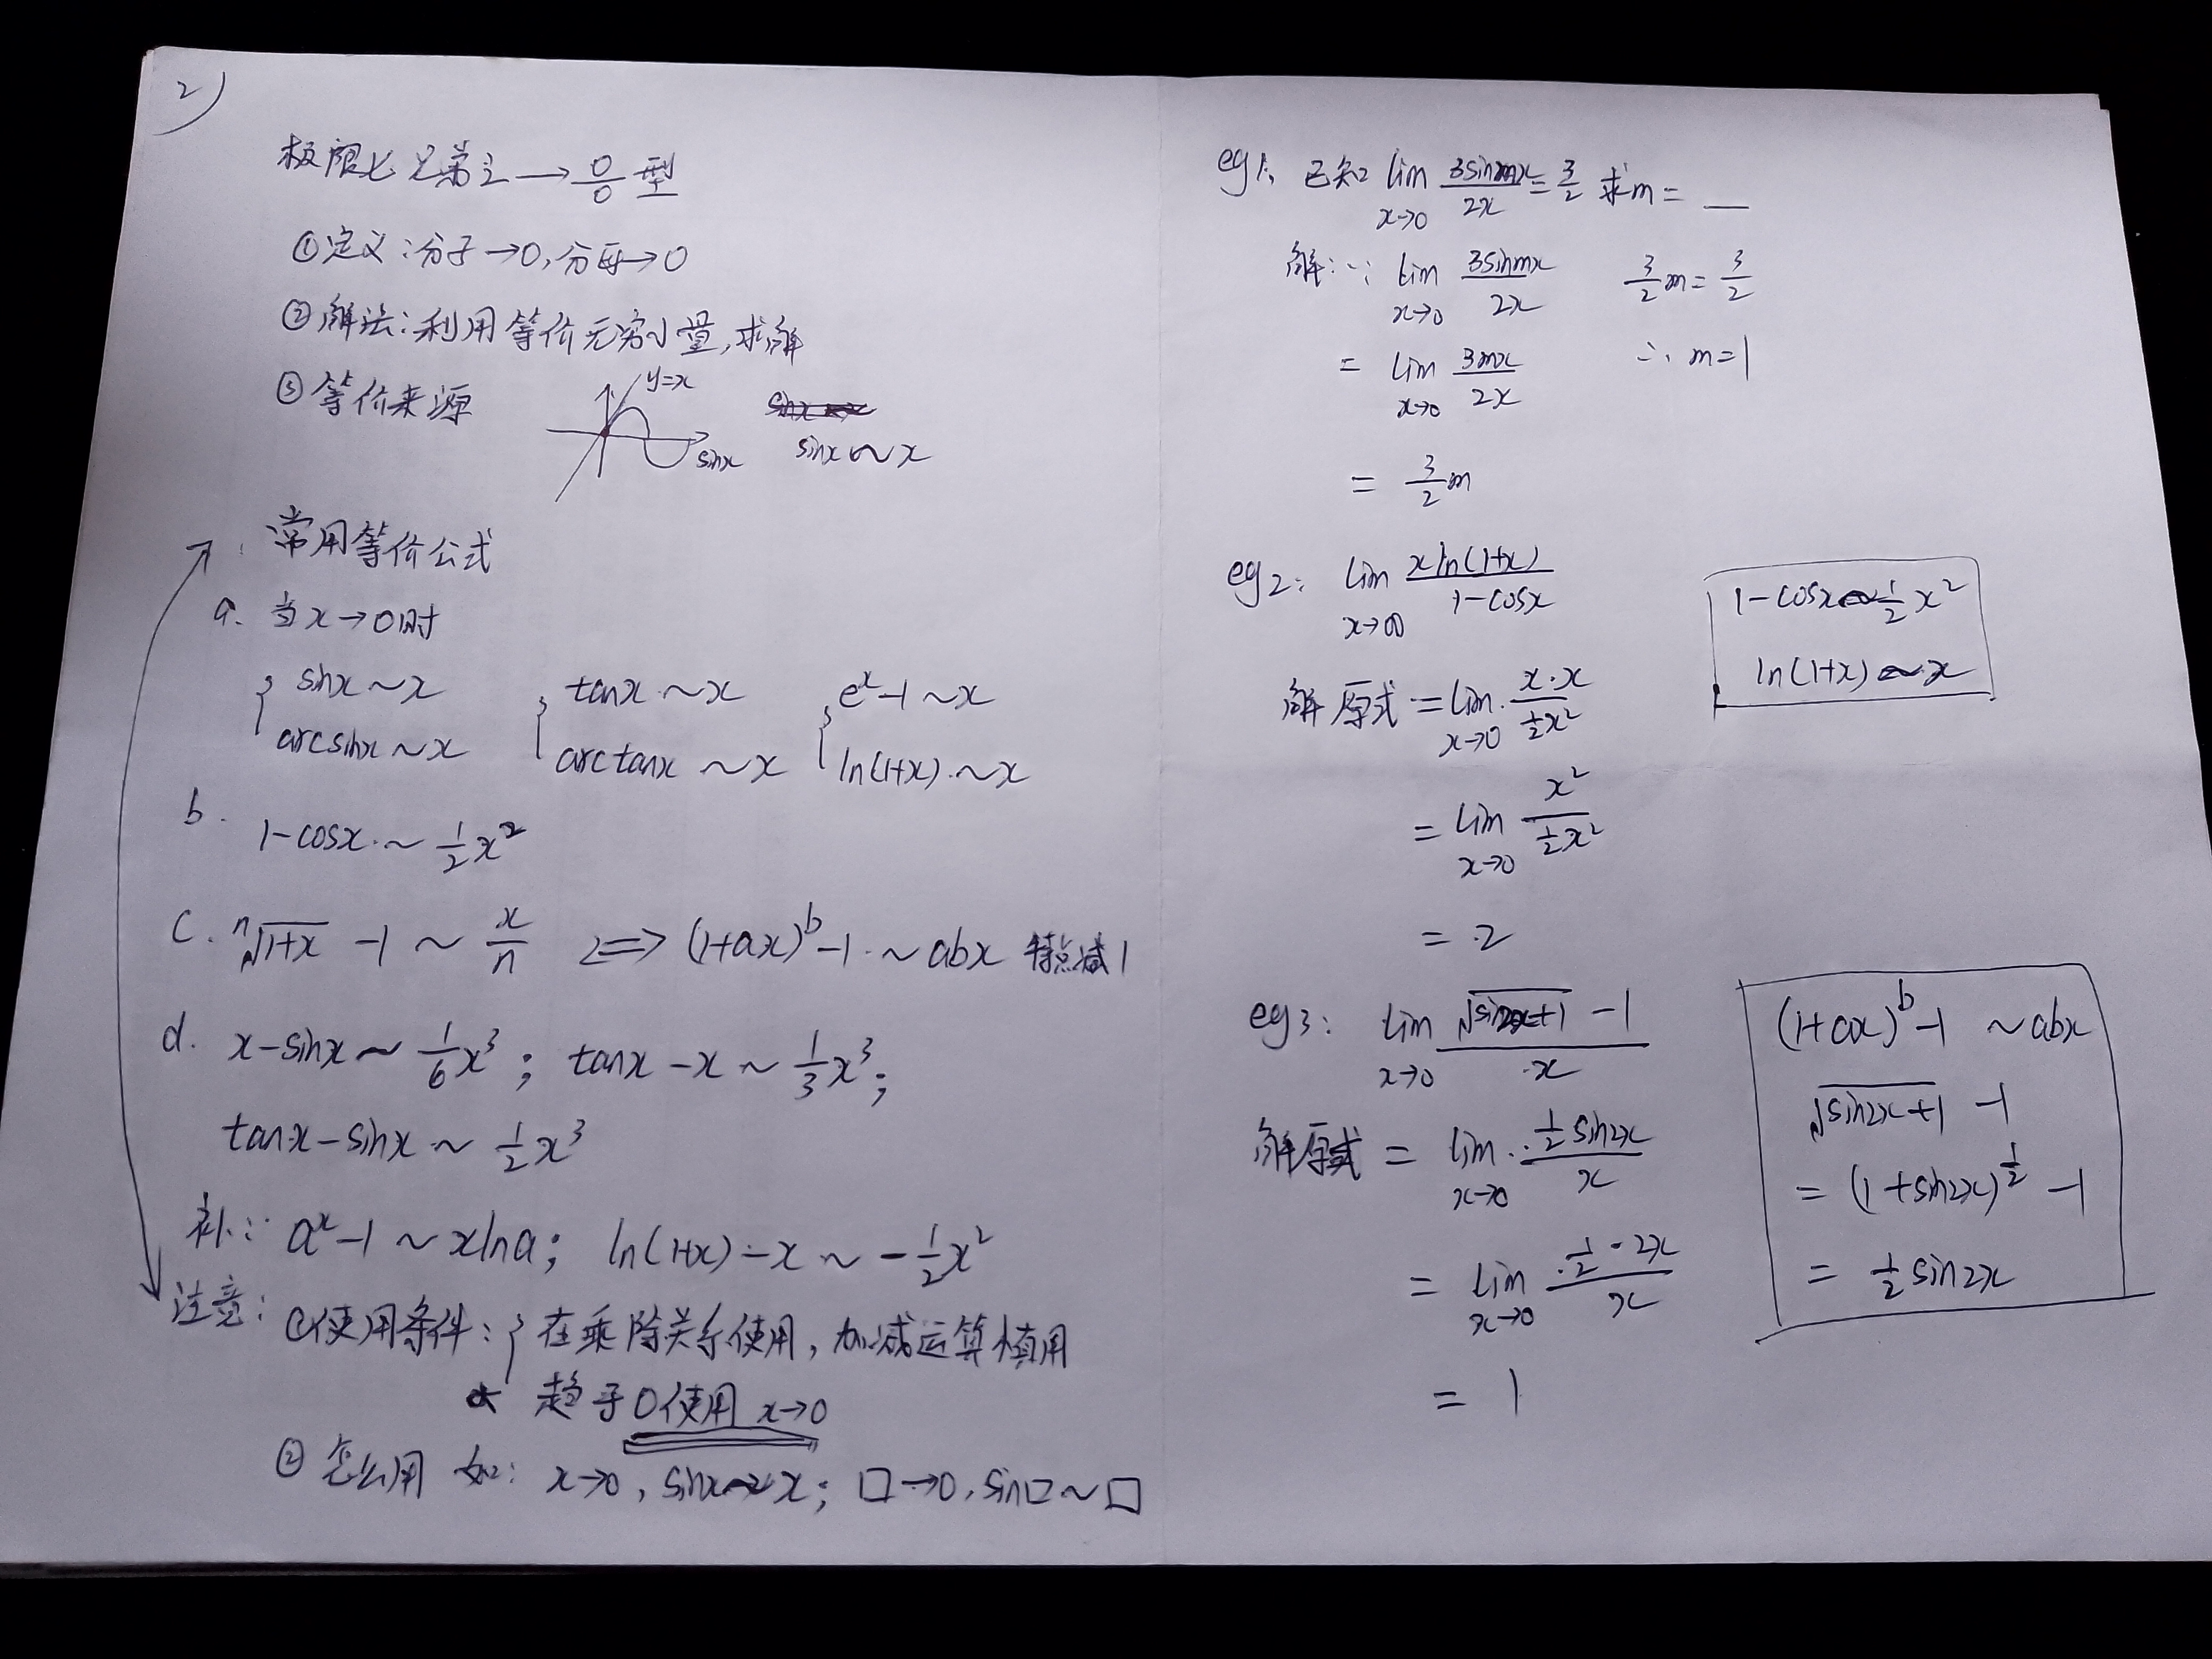 2)
极限七兄弟之→0/0型
①定义:分子→0,分母→0
②解法:利用等价无穷小量,求解
③等价来源
y=x
sinx
sinx~x
常用等价公式
a. 当x→0时
{ sinx~x { tanx~x { e^x-1~x
arcsinx~x arctanx~x ln(1+x)~x
b. 1-cosx~1/2x²
c. ⁿ√(1+x) -1 ~ x/n <=> (1+ax)^b-1~abx 特点减1
d. x-sinx~1/6x³; tanx-x~1/3x³;
tanx-sinx~1/2x³
补: a^x-1~xlna; ln(1+x)-x~-1/2x²
注意: ①使用条件:{在乘除关系使用,加减运算慎用
☆ 趋于0使用 x→0
② 怎么用 如: x→0, sinx~x; □→0, sin□~□
eg1: 已知 lim x→0 3sinmx/2x = 3/2 求m= __
解:∵ lim x→0 3sinmx/2x 3/2m=3/2
= lim x→0 3mx/2x ∴ m=1
= 3/2m
eg2: lim x→∞ xln(1+x)/1-cosx
1-cosx~1/2x²
ln(1+x)~x
解 原式=lim x→0 x·x/1/2x²
= lim x→0 x²/1/2x²
= 2
eg3: lim x→0 √(sin2x+1) -1/x
解原式 = lim x→0 1/2sin2x/x
= lim x→0 1/2·2x/x
= 1
(1+ax)^b-1 ~abx
√(sin2x+1) -1
= (1+sin2x)^1/2 -1
= 1/2sin2x